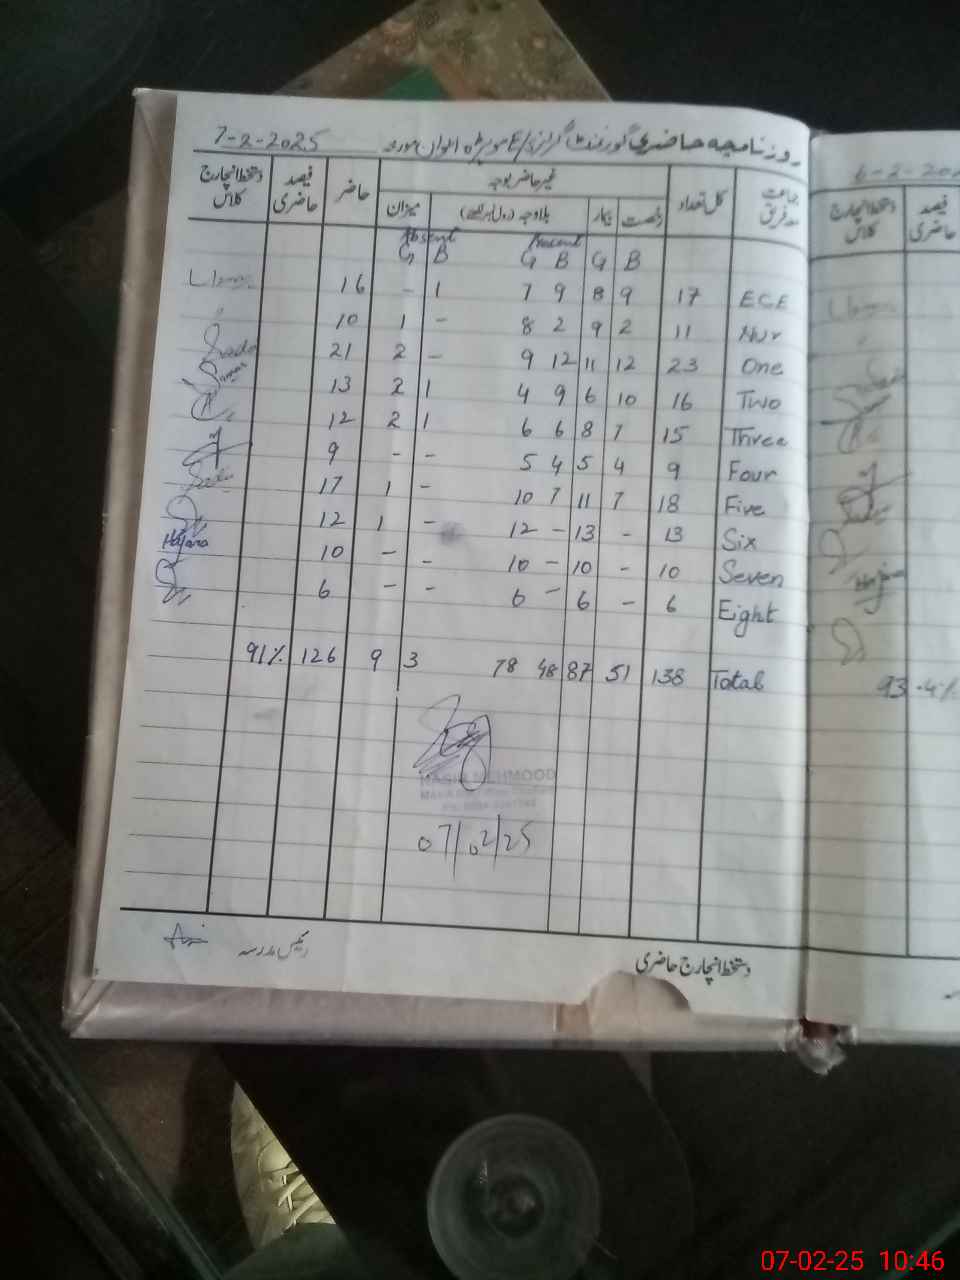 روزنامچہ حاضری گورنمنٹ گرلز مورخہ 7-2-2025
جماعت معہ فریق کل تعداد غیر حاضر بوجہ حاضر فیصد حاضری دستخط انچارج کلاس
رخصت بیمار بلاوجہ میزان
Absent Present
G B G B G B
16 - 1 7 9 8 9 17 ECE
10 1 - 8 2 9 2 11 Nur
21 2 - 9 12 11 12 23 One
13 2 1 4 9 6 10 16 Two
12 2 1 6 6 8 7 15 Three
9 - - 5 4 5 4 9 Four
17 1 - 10 7 11 7 18 Five
12 1 - 12 - 13 - 13 Six
Hajara 10 - - 10 - 10 - 10 Seven
6 - - 6 - 6 - 6 Eight
91% 126 9 3 78 48 87 51 138 Total
MEHMOOD
07/02/25
دستخط انچارج حاضری رئیس مدرسہ
6-2-202
فیصد حاضری دستخط انچارج کلاس
93.4%
07-02-25 10:46